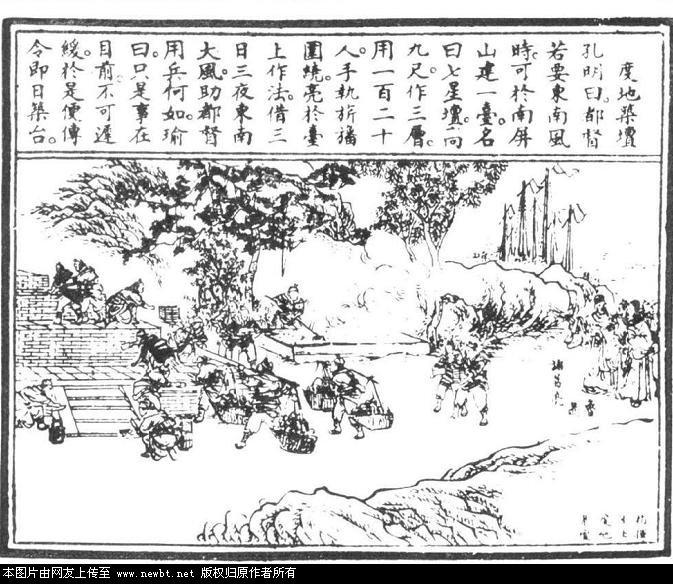 度地築壇
孔明曰。都督
若要東南風
時。可於南屏
山建一臺。名
曰七星壇。高
九尺。作三層。
用一百二十
人。手執旂旛
圍繞。亮於臺
上作法。借三
日三夜東南
大風。助都督
用兵何如。瑜
曰。只是事在
目前。不可遲
緩。於是便傳
令即日築台。
諸葛亮
魯肅
本图片由网友上传至 www.newbt.net 版权归原作者所有